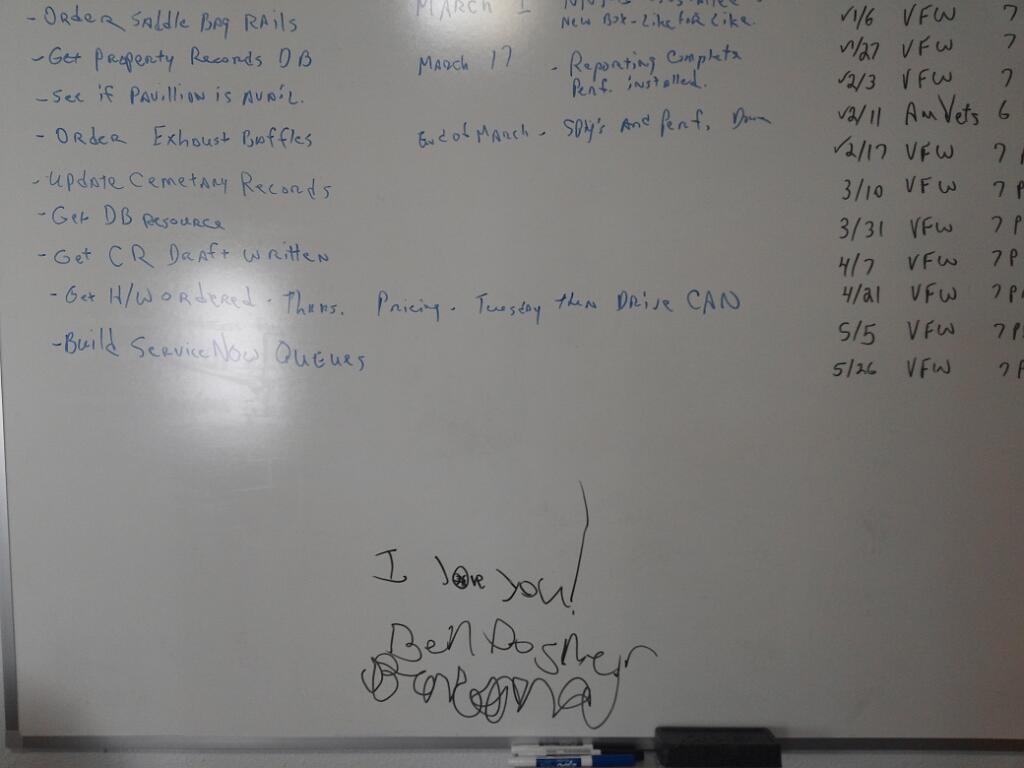 - Order Saddle Bag Rails
- Get Property Records DB
- See if Pavillion is Avail.
- Order Exhaust Baffles
- Update Cemetary Records
- Get DB resource
- Get CR Draft written
- Get H/W ordered - Thurs. Pricing - Tuesday then Drive CAN
- Build ServiceNow Queues
March 1
New Box - Like for Like.
March 17 - Reporting Complete
Perf. installed.
End of March - SDM's and Perf. Down
√1/6 VFW 7
√1/27 VFW 7
√2/3 VFW 7
√2/11 AmVets 6
√2/17 VFW 7 P
3/10 VFW 7 P
3/31 VFW 7 P
4/7 VFW 7 P
4/21 VFW 7 P
5/5 VFW 7 P
5/26 VFW 7 P
I love you!
Ben